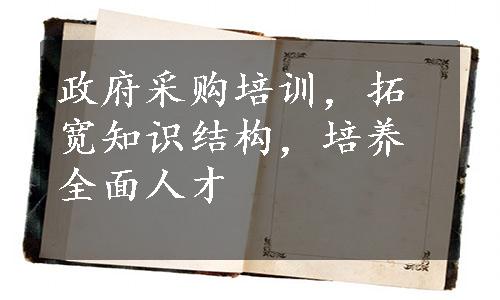 政府采购培训，拓
宽知识结构，培养
全面人才